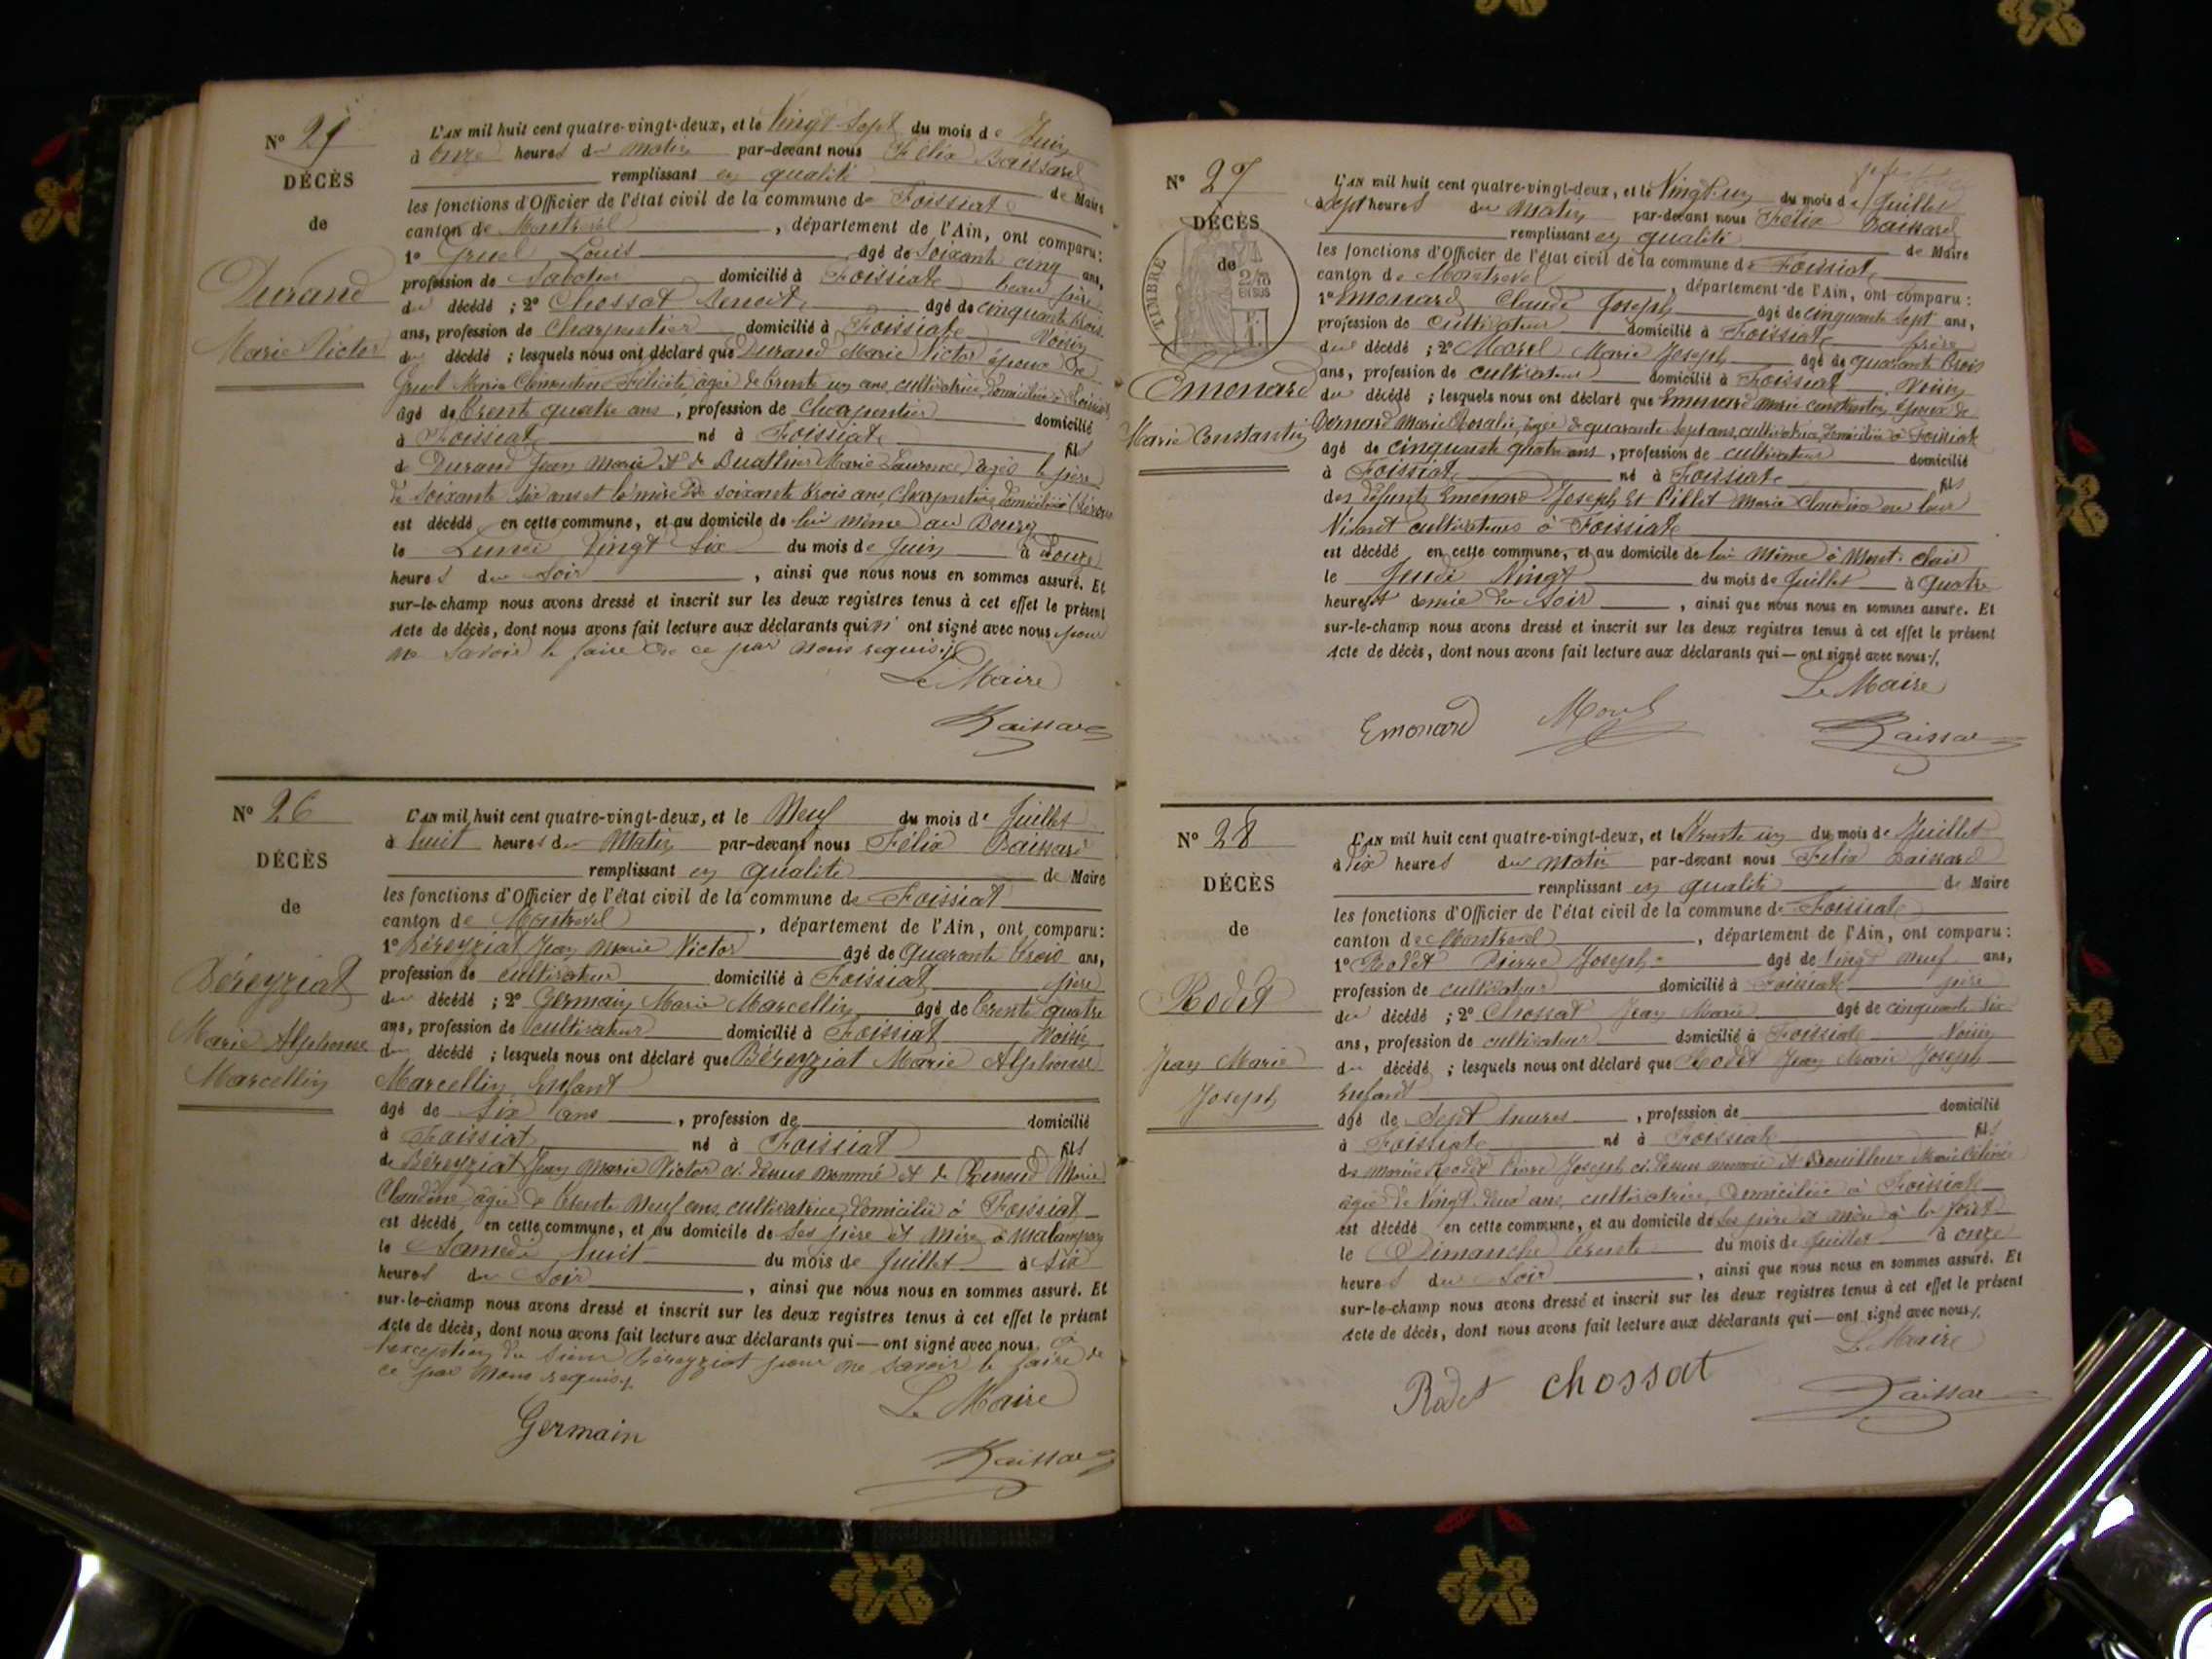 N° 25
DÉCÈS
de
Durand
Marie Victor
L'AN mil huit cent quatre-vingt-deux, et le Vingt Sept du mois de Juin
à Onze heures du matin par-devant nous Félix Baissard
remplissant en qualité de Maire
les fonctions d'Officier de l'état civil de la commune de Foissiat
canton de Montrevel, département de l'Ain, ont comparu:
1° Gruel Louis âgé de Soixante cinq ans,
profession de Sabotier domicilié à Foissiat beau père
du décédé ; 2° Chossat Benoit âgé de cinquante trois
ans, profession de Charpentier domicilié à Foissiat Voisin
du décédé ; lesquels nous ont déclaré que Durand Marie Victor époux de
Gruel Marie Clementine Félicité âgée de trente un ans, cultivatrice domiciliée à Foissiat
âgé de trente quatre ans, profession de Charpentier domicilié
à Foissiat né à Foissiat fils
de Durand Jean Marie et de Buathier Marie Laurence, âgés le père
de soixante six ans et la mère de soixante trois ans, Charpentier, domiciliés
est décédé en cette commune, et au domicile de lui même au Bourg
le Lundi Vingt Six du mois de Juin à Douze
heures du Soir, ainsi que nous nous en sommes assuré. Et
sur-le-champ nous avons dressé et inscrit sur les deux registres tenus à cet effet le présent
Acte de décès, dont nous avons fait lecture aux déclarants qui n' ont signé avec nous pour
ne savoir le faire de ce par nous requis ./.
Le Maire
Baissard
N° 26
DÉCÈS
de
Béreyziat
Marie Alphonse
Marcellin
L'AN mil huit cent quatre-vingt-deux, et le Neuf du mois de Juillet
à huit heures du Matin par-devant nous Félix Baissard
remplissant en qualité de Maire
les fonctions d'Officier de l'état civil de la commune de Foissiat
canton de Montrevel, département de l'Ain, ont comparu:
1° Béreyziat Jean Marie Victor âgé de Quarante trois ans,
profession de cultivateur domicilié à Foissiat père
du décédé ; 2° Germain Marie Marcellin âgé de trente quatre
ans, profession de cultivateur domicilié à Foissiat Voisin
du décédé ; lesquels nous ont déclaré que Béreyziat Marie Alphonse
Marcellin Enfant
âgé de Six ans, profession de domicilié
à Foissiat né à Foissiat fils
de Béreyziat Jean Marie Victor ci dessus nommé et de Renoud Marie
Claudine âgée de trente Neuf ans, cultivatrice, domiciliée à Foissiat
est décédé en cette commune, et au domicile de Ses père et mère à Malampan
le Samedi huit du mois de Juillet à Six
heures du Soir, ainsi que nous nous en sommes assuré. Et
sur-le-champ nous avons dressé et inscrit sur les deux registres tenus à cet effet le présent
Acte de décès, dont nous avons fait lecture aux déclarants qui — ont signé avec nous à
l'exception du sieur Béreyziat pour ne savoir le faire de
ce par nous requis ./.
Le Maire
Germain
Baissard
N° 27
DÉCÈS
de
TIMBRE
Emonard
Marie Constantin
L'AN mil huit cent quatre-vingt-deux, et le Vingt-un du mois de Juillet
à Sept heures du Matin par-devant nous Félix Baissard
remplissant en qualité de Maire
les fonctions d'Officier de l'état civil de la commune de Foissiat
canton de Montrevel, département de l'Ain, ont comparu:
1° Emonard Claude Joseph âgé de cinquante sept ans,
profession de Cultivateur domicilié à Foissiat frère
du décédé ; 2° Morel Marie Joseph âgé de quarante trois
ans, profession de cultivateur domicilié à Foissiat Voisin
du décédé ; lesquels nous ont déclaré que Emonard Marie Constantin époux de
Bernard Marie Rosalie, âgée de quarante Sept ans, cultivatrice, domiciliée à Foissiat
âgé de cinquante quatre ans, profession de cultivateur domicilié
à Foissiat né à Foissiat fils
des défunts Emonard Joseph et Pillet Marie Claudine de leur
Vivant cultivateurs à Foissiat
est décédé en cette commune, et au domicile de lui même à Mont-clair
le Jeudi Vingt du mois de Juillet à Quatre
heures et demie du Soir, ainsi que nous nous en sommes assuré. Et
sur-le-champ nous avons dressé et inscrit sur les deux registres tenus à cet effet le présent
Acte de décès, dont nous avons fait lecture aux déclarants qui — ont signé avec nous ./.
Le Maire
Emonard Morel
Baissard
N° 28
DÉCÈS
de
Rodet
Jean Marie
Joseph
L'AN mil huit cent quatre-vingt-deux, et le Trente un du mois de Juillet
à Dix heures du matin par-devant nous Félix Baissard
remplissant en qualité de Maire
les fonctions d'Officier de l'état civil de la commune de Foissiat
canton de Montrevel, département de l'Ain, ont comparu:
1° Rodet Pierre Joseph âgé de Vingt Neuf ans,
profession de cultivateur domicilié à Foissiat père
du décédé ; 2° Chossat Jean Marie âgé de cinquante Six
ans, profession de cultivateur domicilié à Foissiat Voisin
du décédé ; lesquels nous ont déclaré que Rodet Jean Marie Joseph
Enfant
âgé de Sept heures, profession de domicilié
à Foissiat né à Foissiat fils
des mariés Rodet Pierre Joseph ci dessus nommé et Brouilloux Marie
âgée de Vingt deux ans, cultivatrice, domiciliée à Foissiat
est décédé en cette commune, et au domicile de Ses père et mère à la forêt
le Dimanche trente du mois de Juillet à onze
heures du Soir, ainsi que nous nous en sommes assuré. Et
sur-le-champ nous avons dressé et inscrit sur les deux registres tenus à cet effet le présent
Acte de décès, dont nous avons fait lecture aux déclarants qui — ont signé avec nous ./.
Le Maire
Rodet Chossat
Baissard